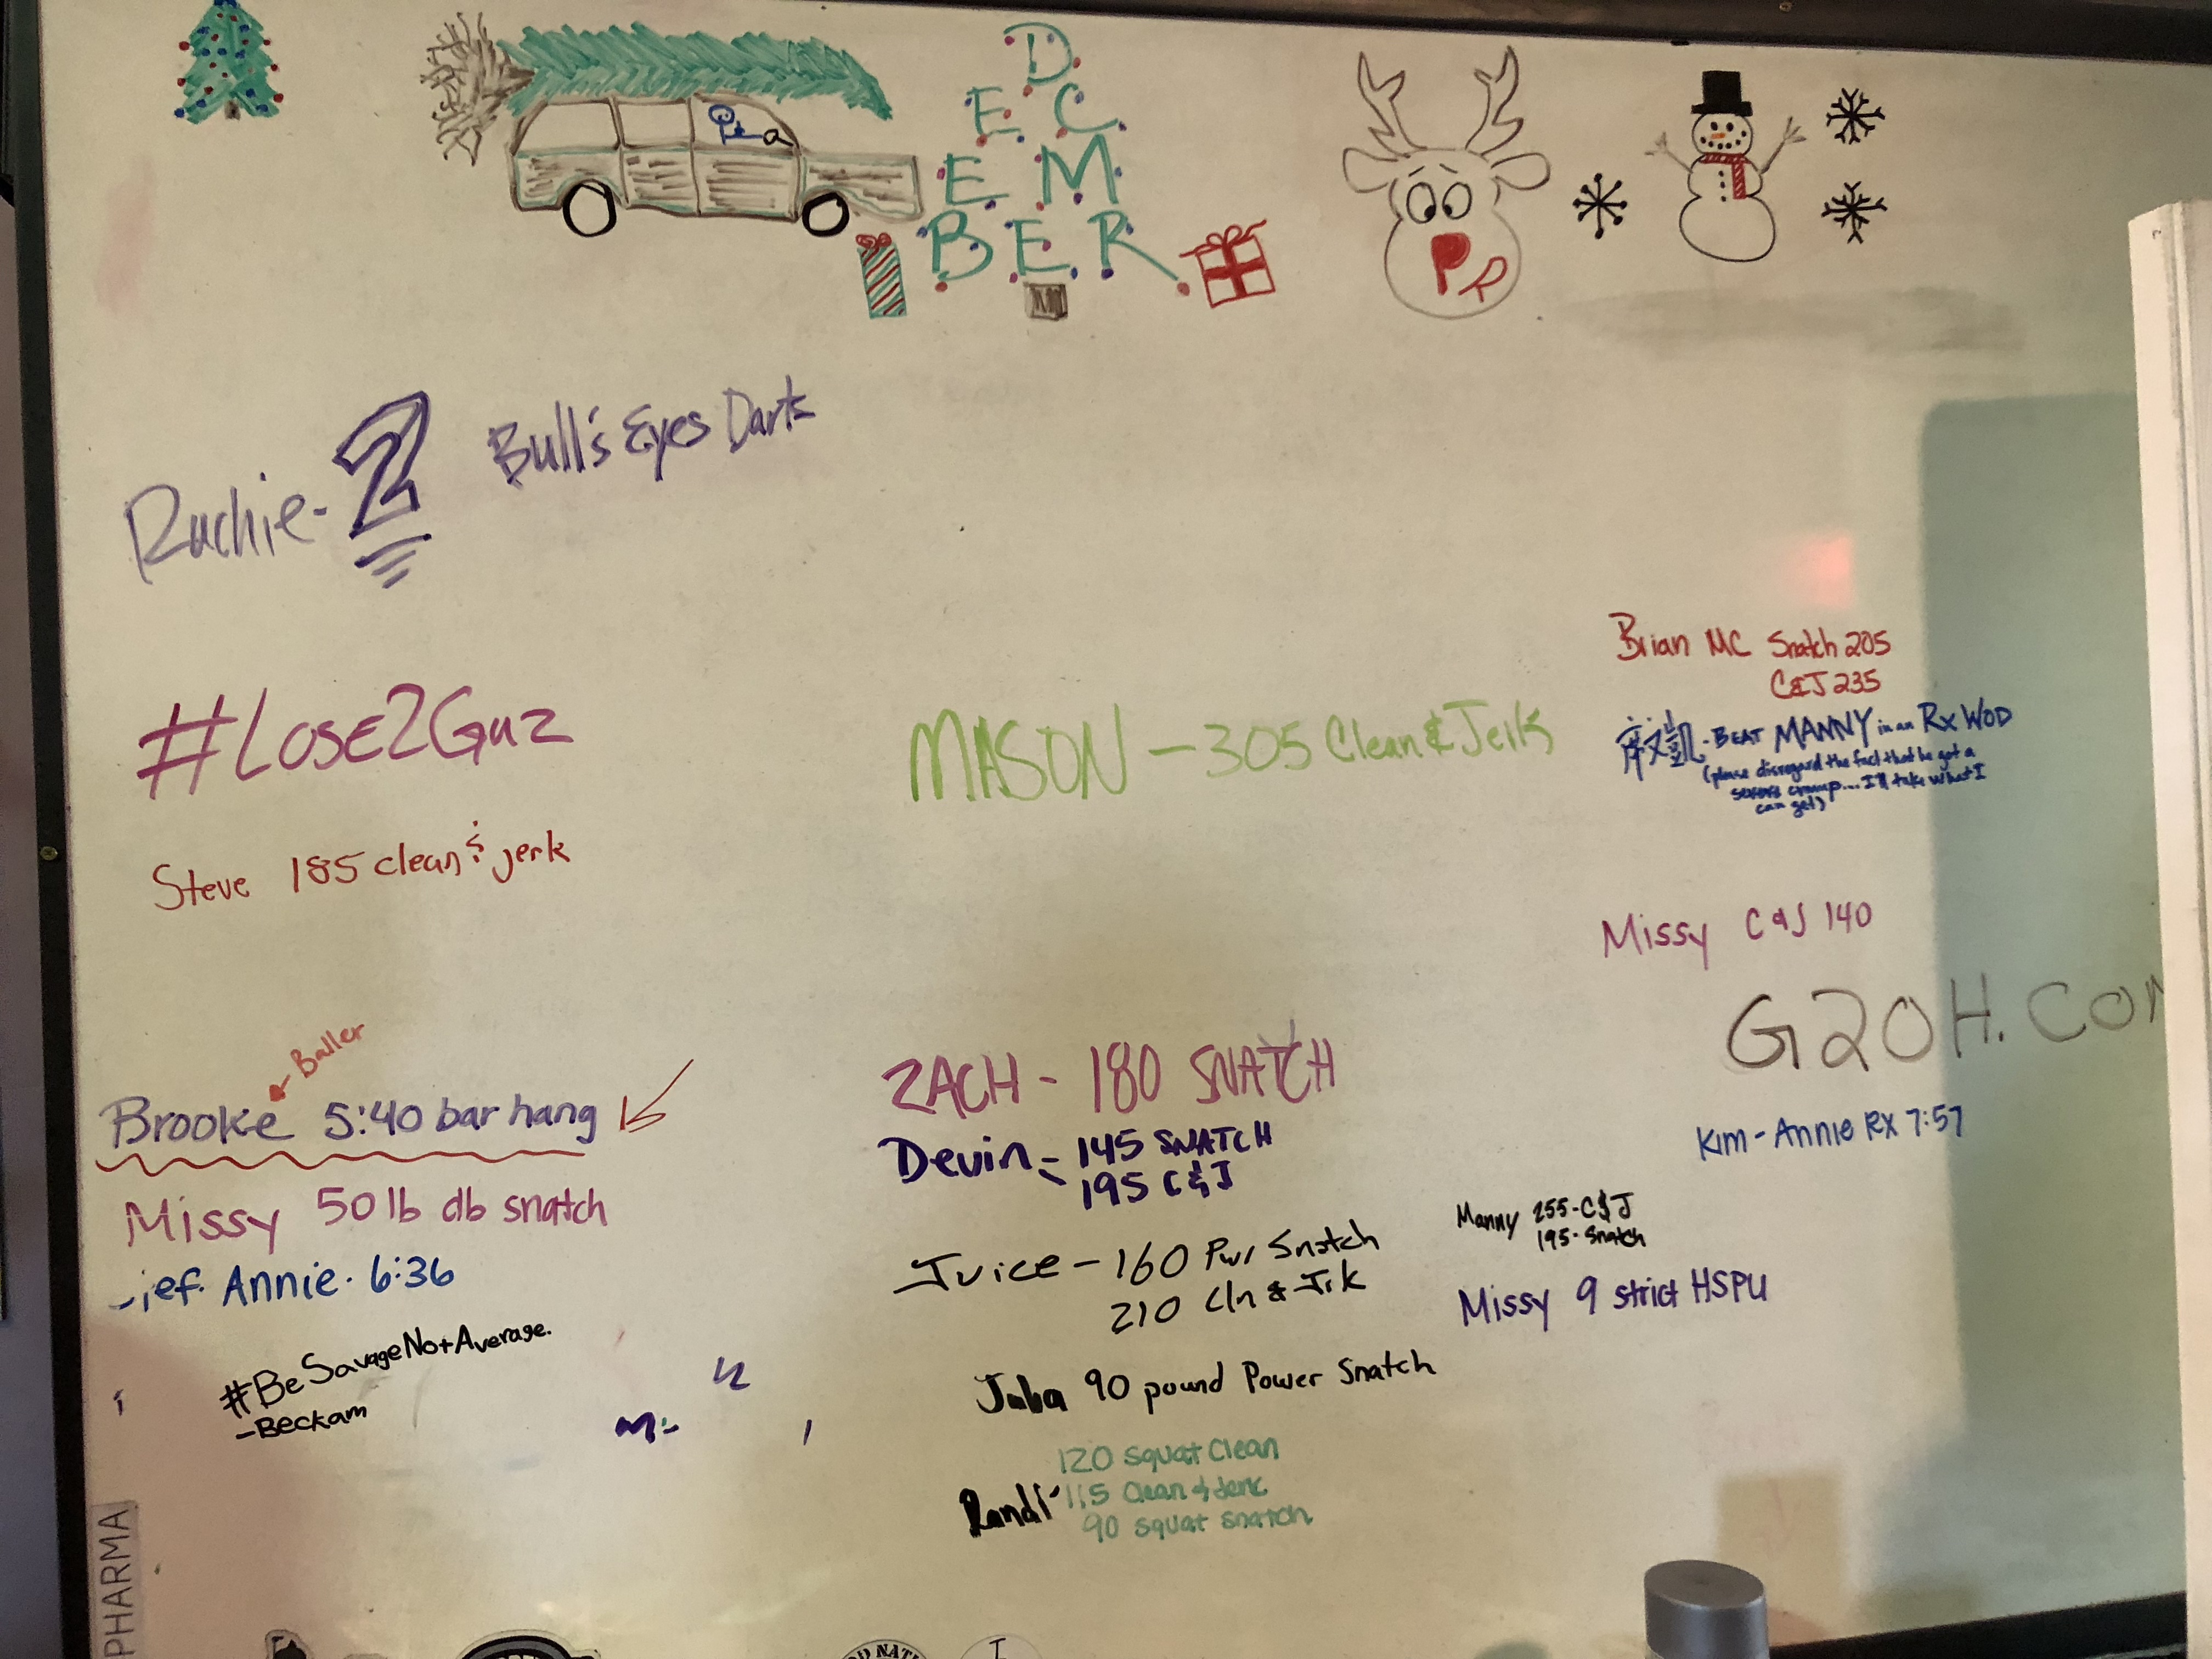 D
E C
E M
B E R
PR
Ruchie - 2 Bull's Eyes Darts
#Lose2Guz
Steve 185 clean & jerk
Baller
Brooke 5:40 bar hang
Missy 50 lb db snatch
Annie. 6:36
#BeSavageNotAverage.
-Beckam
PHARMA
MASON - 305 Clean & Jerk
ZACH - 180 SNATCH
Devin - 145 SNATCH
195 C&J
Juice - 160 Pwr Snatch
210 Cln & Jrk
90 pound Power Snatch
120 squat clean
Randi 115 Clean & Jerk
90 squat snatch
Brian MC Snatch 205
C&J 235
- BEAT MANNY in an Rx WOD
(please disregard the fact that he got a
severe cramp... I'll take what I
can get)
Missy C&J 140
G2OH.CO
Kim - Annie Rx 7:57
Manny 255-C&J
195-Snatch
Missy 9 strict HSPU